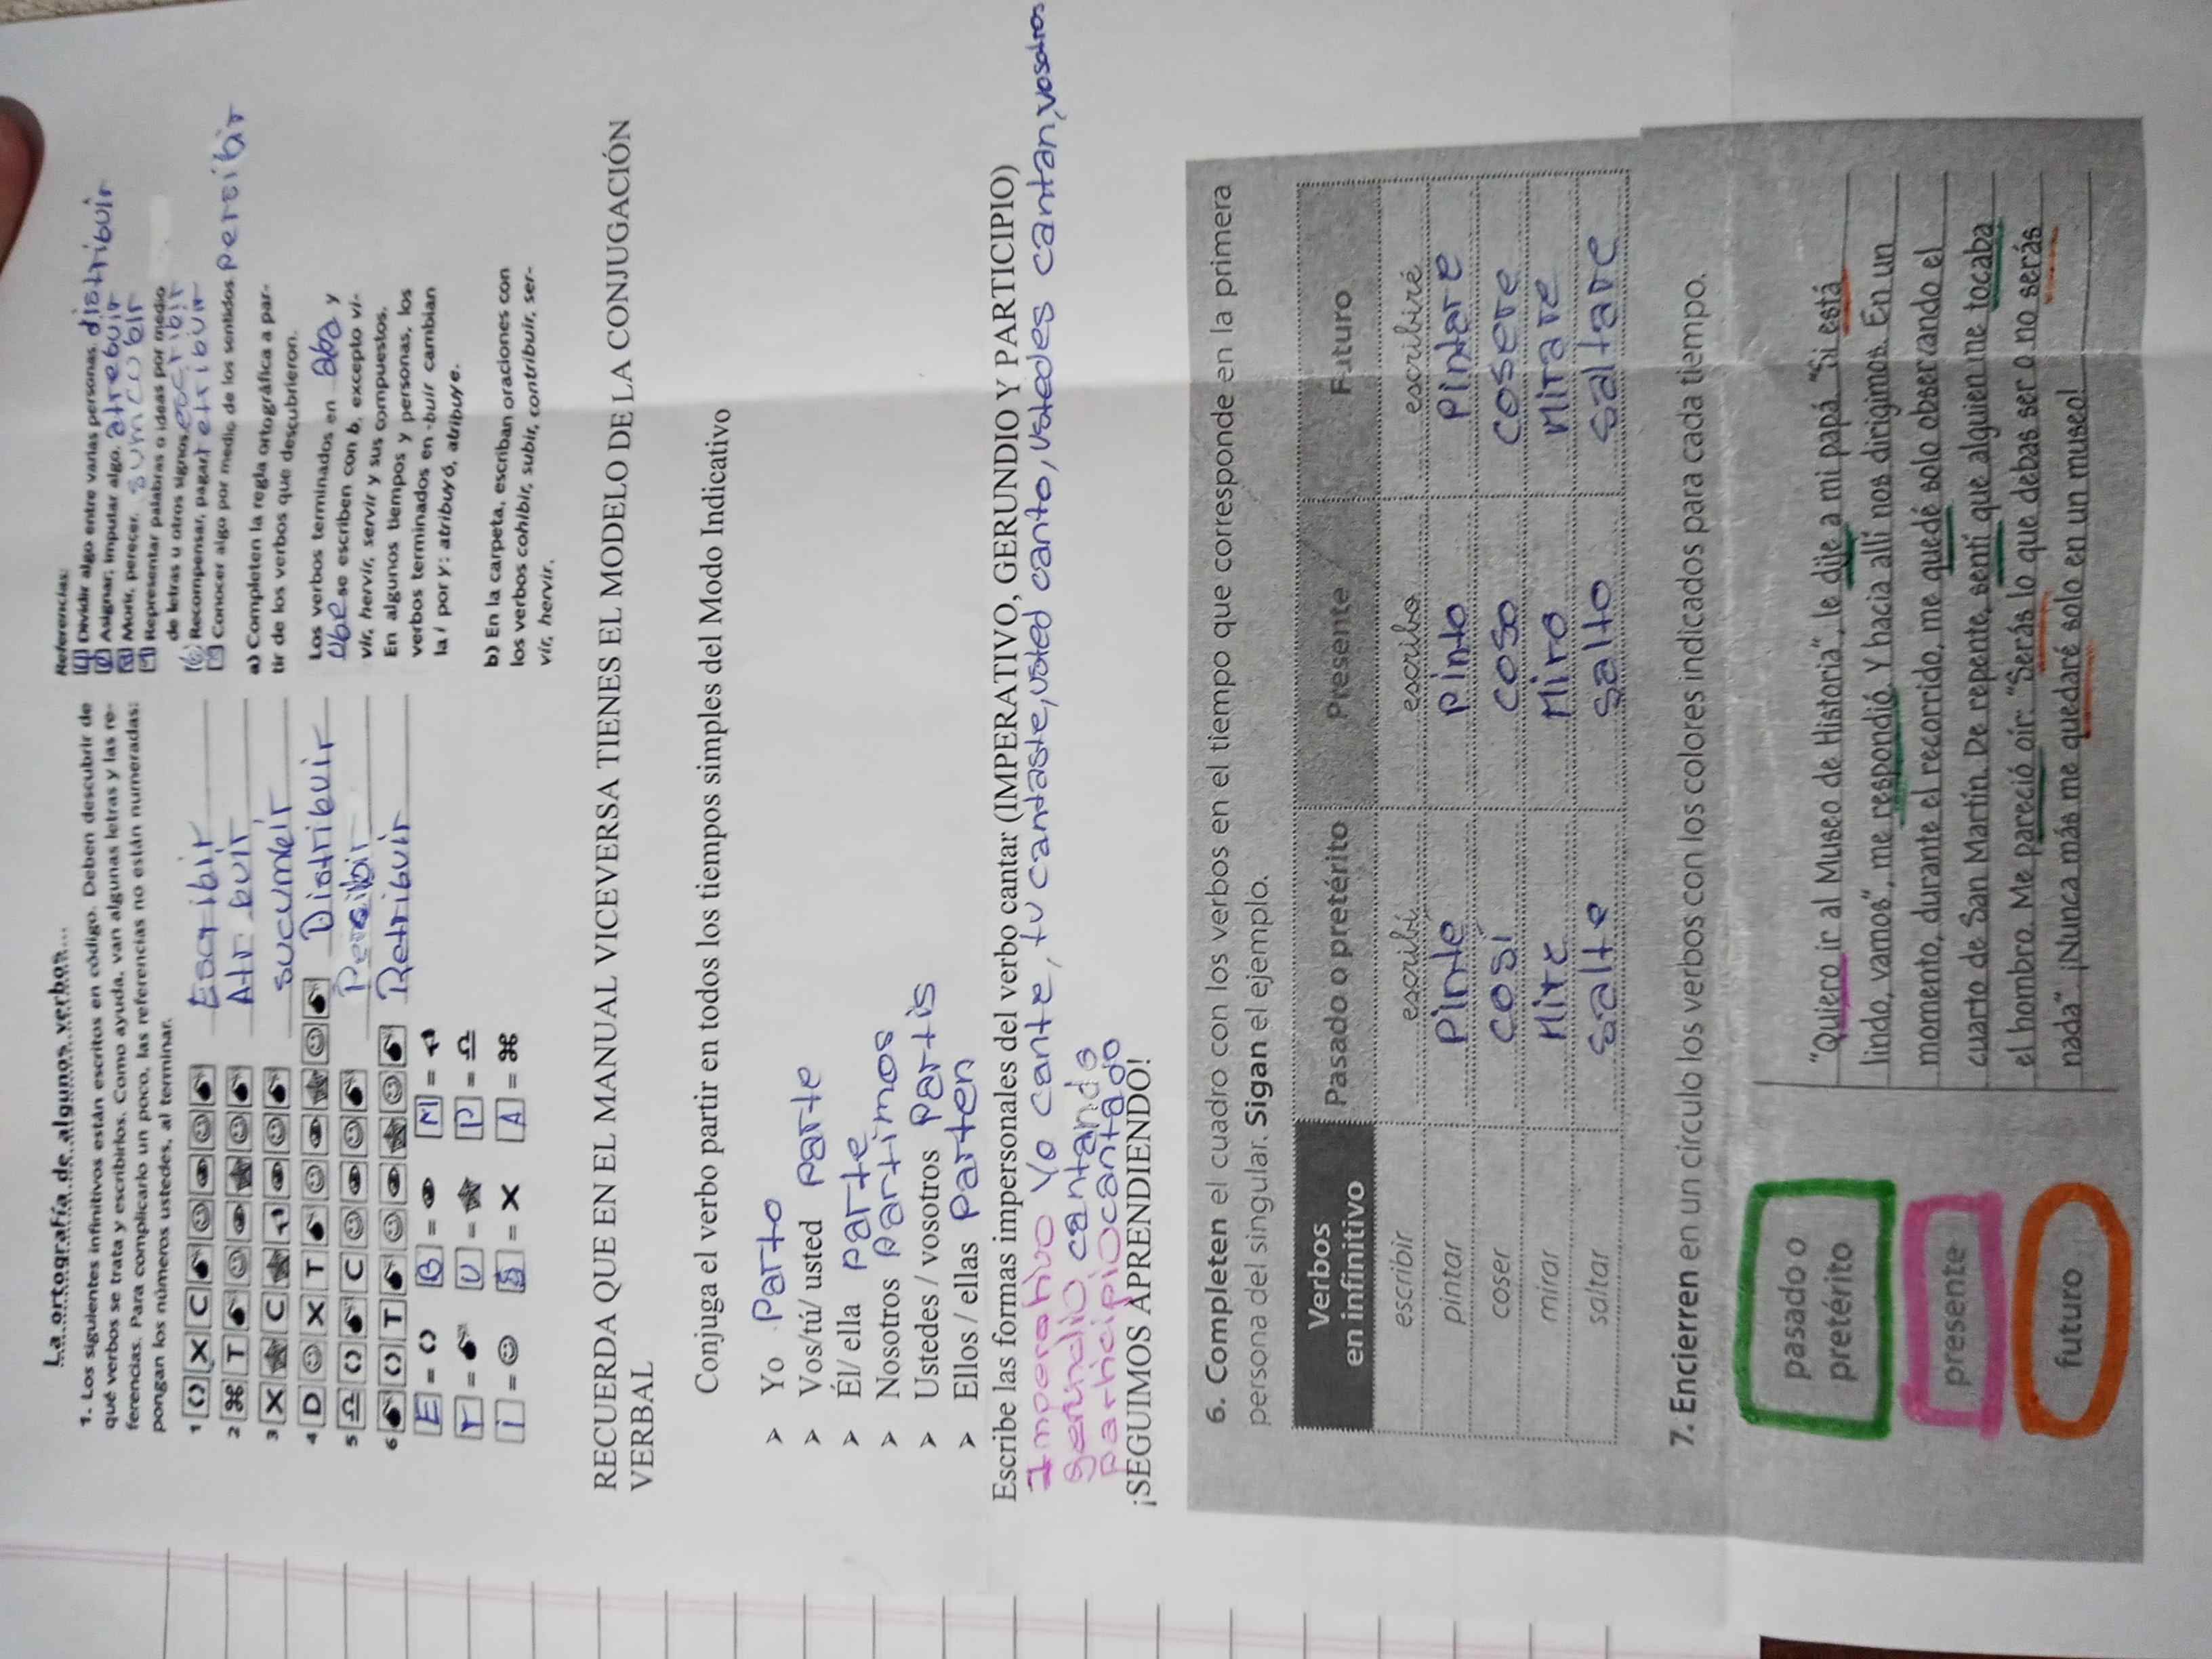 La ortografía de algunos verbos...
1. Los siguientes infinitivos están escritos en código. Deben descubrir de
qué verbos se trata y escribirlos. Como ayuda, van algunas letras y las re-
ferencias. Para complicarlo un poco, las referencias no están numeradas:
pongan los números ustedes, al terminar.
1 X C Escribir
2 T Atr buir
3 X C sucumbir
4 D X T Distribuir
5 C Percibir
6 T Retribuir
E = B = M =
r = U = P =
i = S = X A = ⌘
Referencias:
4 Dividir algo entre varias personas. distribuir
2 Asignar, imputar algo. atrebuir
3 Morir, perecer. sumcubir
1 Representar palabras o ideas por medio
de letras u otros signos. escribir
6 Recompensar, pagar. retribuir
Conocer algo por medio de los sentidos. persibir
a) Completen la regla ortográfica a par-
tir de los verbos que descubrieron.
Los verbos terminados en y
se escriben con b, excepto vi-
vir, hervir, servir y sus compuestos.
En algunos tiempos y personas, los
verbos terminados en -buir cambian
la i por y: atribuyó, atribuye.
b) En la carpeta, escriban oraciones con
los verbos cohibir, subir, contribuir, ser-
vir, hervir.
RECUERDA QUE EN EL MANUAL VICEVERSA TIENES EL MODELO DE LA CONJUGACIÓN
VERBAL
Conjuga el verbo partir en todos los tiempos simples del Modo Indicativo
➤ Yo Parto
➤ Vos/tú/ usted parte
➤ Él/ ella parte
➤ Nosotros partimos
➤ Ustedes / vosotros Partis
➤ Ellos / ellas Parten
Escribe las formas impersonales del verbo cantar (IMPERATIVO, GERUNDIO Y PARTICIPIO)
Imperativo Yo cante, tu cantaste, usted canto, ustedes cantan, vosotros
gerundio cantando
participio cantado
¡SEGUIMOS APRENDIENDO!
6. Completen el cuadro con los verbos en el tiempo que corresponde en la primera
persona del singular. Sigan el ejemplo.
Verbos en infinitivo Pasado o pretérito Presente Futuro
escribir escribí escribo escribiré
pintar Pinte Pinto Pintare
coser cosí coso cosere
mirar Mire Miro Mirare
saltar Salte Salto Saltare
7. Encierren en un círculo los verbos con los colores indicados para cada tiempo.
pasado o
pretérito
presente
futuro
"Quiero ir al Museo de Historia", le dije a mi papá. "Si está
lindo, vamos", me respondió. Y hacia allí nos dirigimos. En un
momento, durante el recorrido, me quedé solo observando el
cuarto de San Martín. De repente, sentí que alguien me tocaba
el hombro. Me pareció oír: "Serás lo que debas ser o no serás
nada". ¡Nunca más me quedaré solo en un museo!